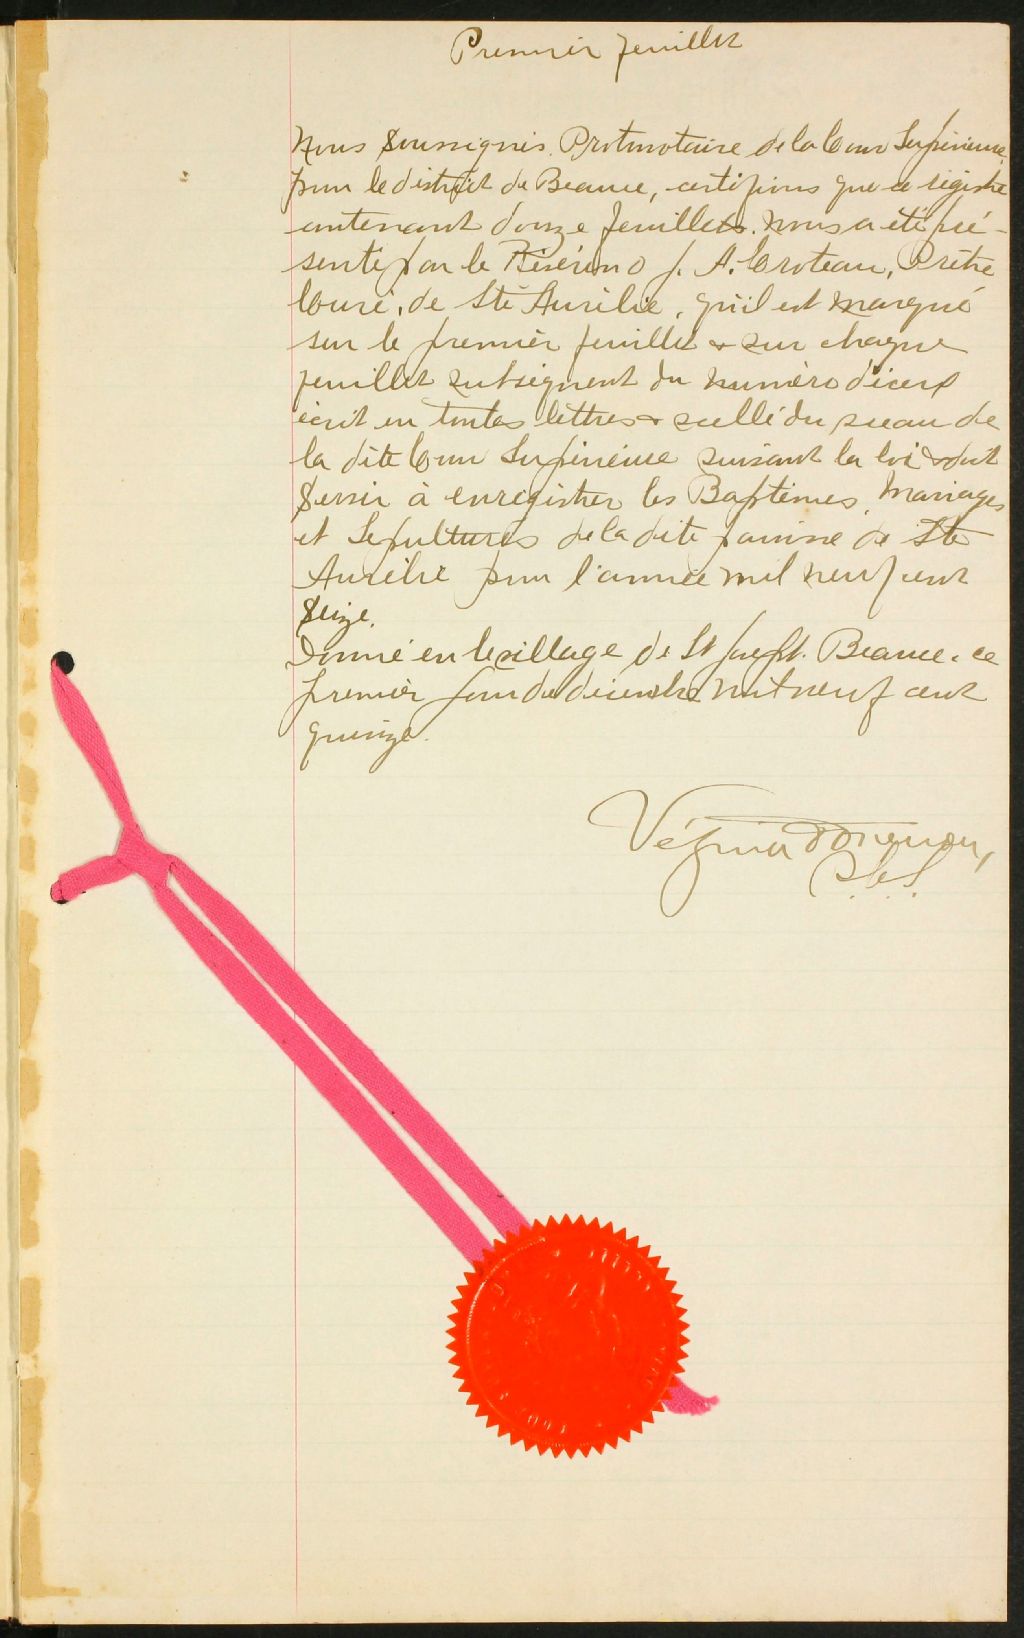 Premier feuillet
Nous Soussignés Protonotaire de la Cour Supérieure
pour le district de Beauce, certifions que ce régistre
contenant douze feuillets. nous a été pré-
senté par le Révérend J. A. Croteau, Prêtre
Curé, de Ste Aurélie, qu'il est marqué
sur le premier feuillet & sur chaque
feuillet subséquent du numéro d'icelui
écrit en toutes lettres & scellé du sceau de
la dite Cour Supérieure suivant la loi & doit
Servir à enrégistrer les Baptêmes, Mariages
et Sépultures de la dite paroisse de Ste
Aurélie pour l'année mil neuf cent
Seize.
Donné en le village de St Joseph. Beauce. ce
premier jour de décembre mil neuf cent
quinze.
Vézina
P. C. S.